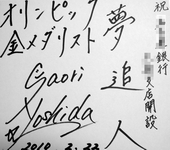 祝
銀行
支店開設
夢追人
オリンピック
金メダリスト
Saori
Yoshida
2010 2. 22